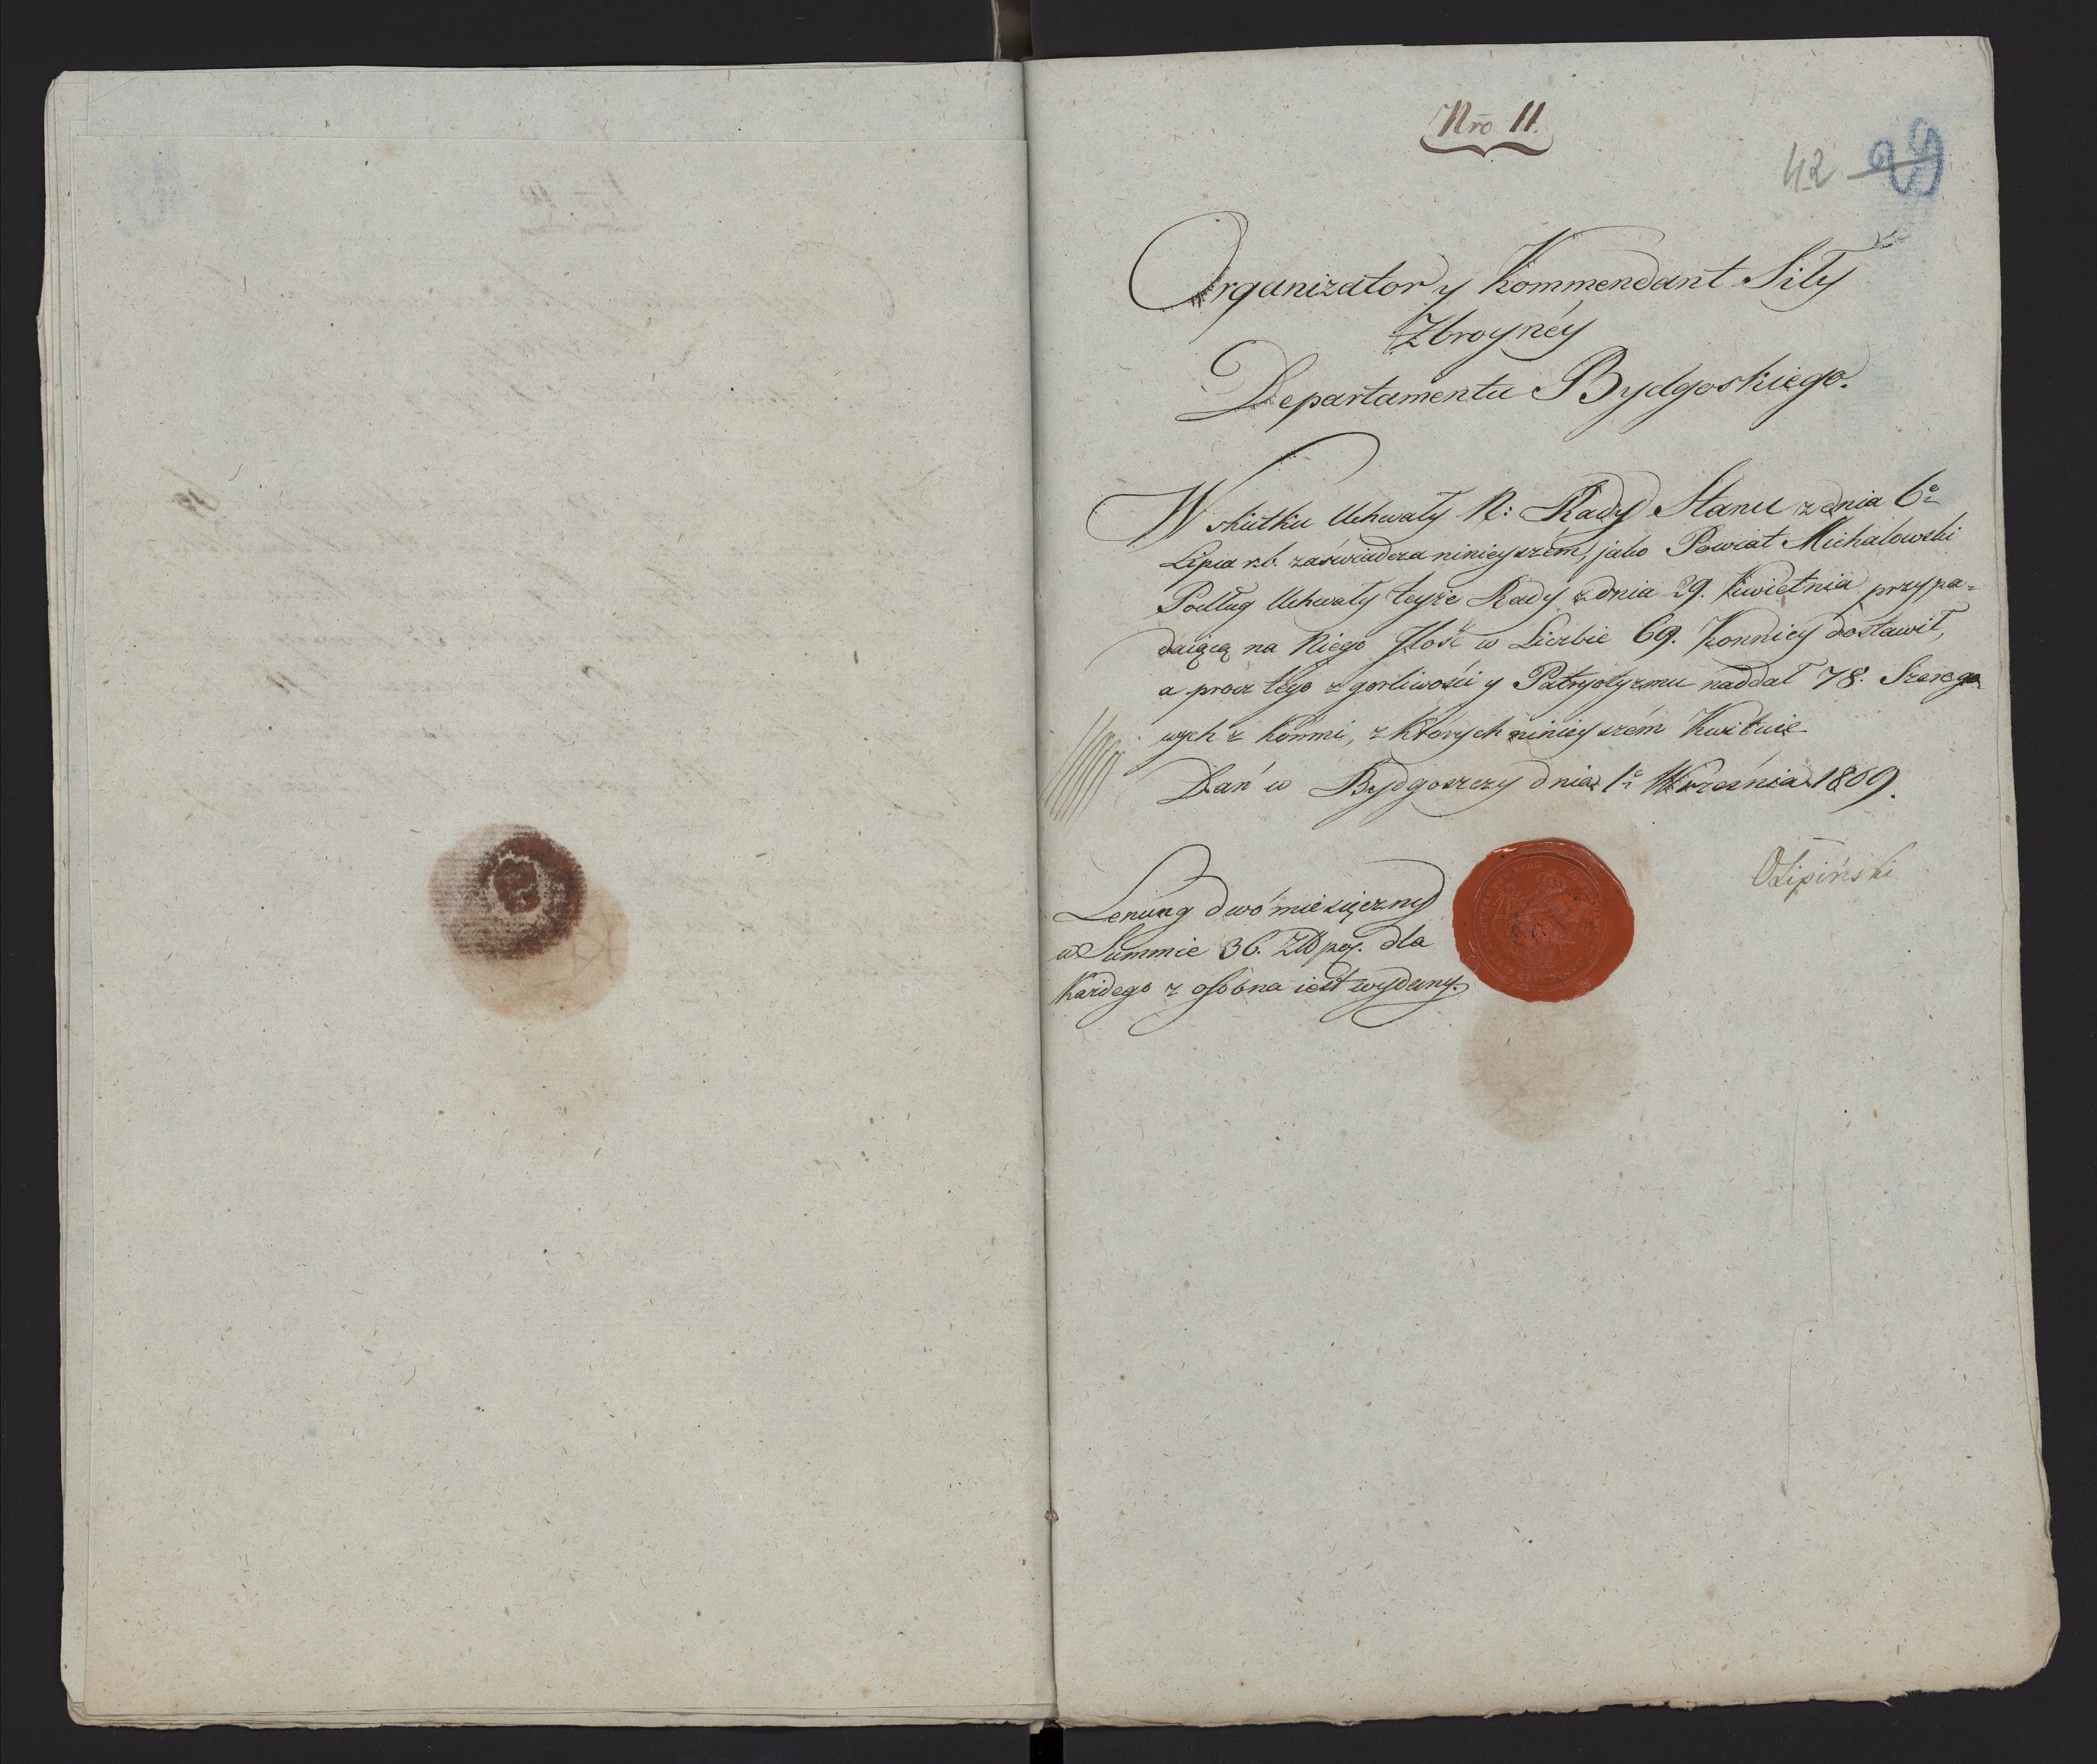 Nrō 11.
42 29
Organizator y Kommendant Siły
Zbroynéy
Departamentu Bydgoskiego.
W skutku Uchwały R: Rady Stanu z dnia 6º
Lipca r.b. zaświadcza ninieyszém, jako Powiat Michałowski
Podług Uchwały teyże Rady z dnia 29. Kwietnia przypa-
daiącą na Niego Jlość w Liczbie 69. Konnicy dostawił,
a procz tego z gorliwości y Patryotyzmu naddał 78. Szerego
wych z końmi, z których ninieyszém Kwituie
Dań w Bydgoszczy dnia 1º Września 1809.
OLipiński
Lenung dwómiesięczny
w Summie 36. Złł pol. dla
Każdego z osobna iest wydany.